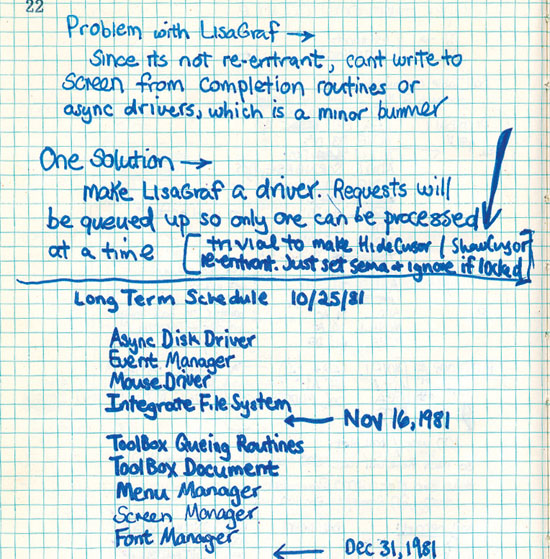 22
Problem with LisaGraf →
Since its not re-entrant, cant write to
screen from completion routines or
async drivers, which is a minor bummer
One Solution →
make LisaGraf a driver. Requests will
be queued up so only one can be processed
at a time [trivial to make HideCursor / ShowCursor
re-entrant. Just set sema + ignore if locked]
Long Term Schedule 10/25/81
Async Disk Driver
Event Manager
Mouse Driver
Integrate File System
← Nov 16, 1981
ToolBox Queing Routines
ToolBox Document
Menu Manager
Screen Manager
Font Manager
← Dec 31, 1981